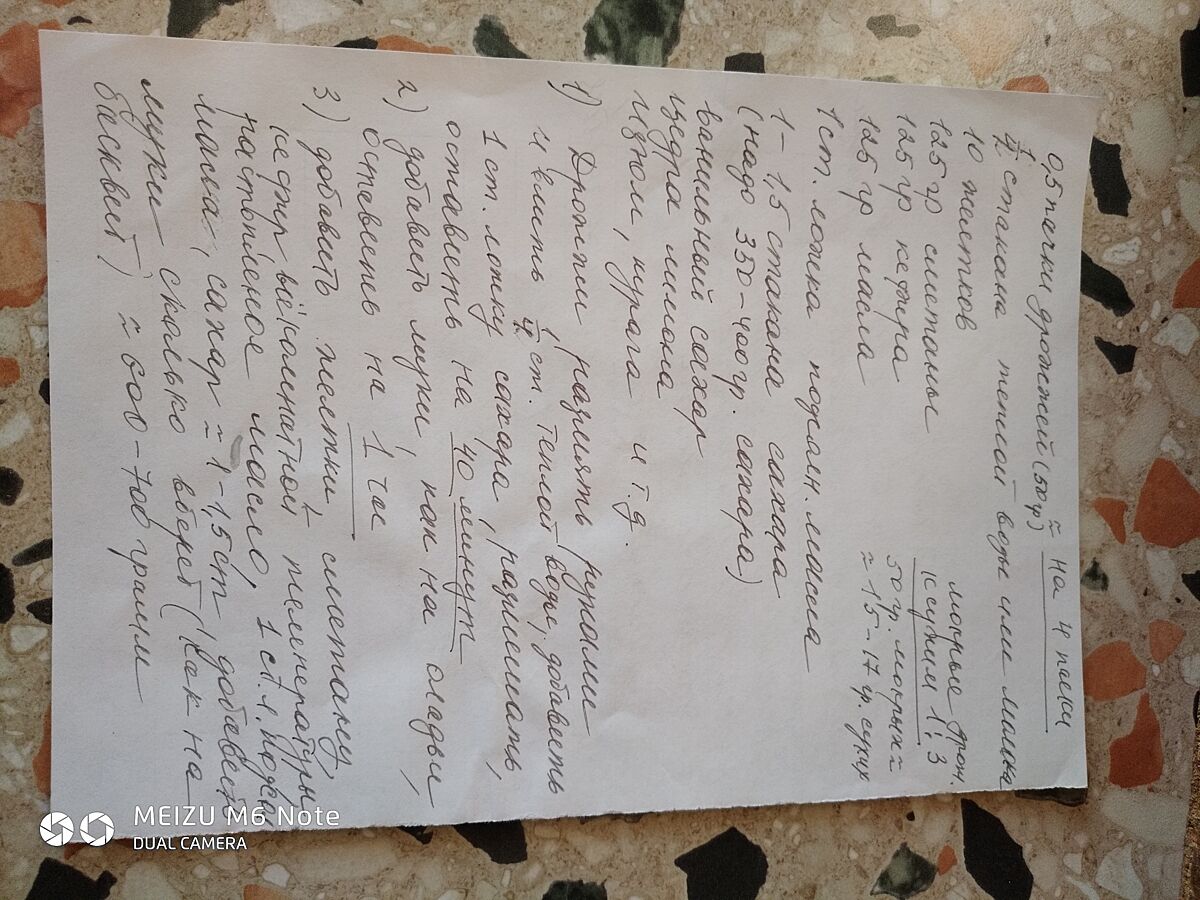 0,5 пачки дрожжей (50г) ≈ На 4 паски
1/4 стакана теплой воды или молока
10 желтков
мокрые дрож.
125 гр сметаны
к сухим 1:3
125 гр кефира
50 гр. мокрых ≈
125 гр масла
≈ 15-17 гр. сухих
1 ст. ложка подсолн. масла
1-1,5 стакана сахара
(надо 350-400 гр. сахара)
ванильный сахар
цедра лимона
изюм, курага и т.д.
1) Дрожжи размять руками
и влить 1/4 ст. теплой воды, добавить
1 ст. ложку сахара, размешать,
оставить на 40 минут
2) добавить муки как на оладьи,
оставить на 1 час
3) добавить желтки, сметану,
кефир комнатной температуры,
растопленое масло, 1 ст.л. подсол
масла, сахар ≈ 1-1,5 ст добавить
муки сколько вберет (как на
бисквит) ≈ 600-700 грамм
MEIZU M6 Note
DUAL CAMERA